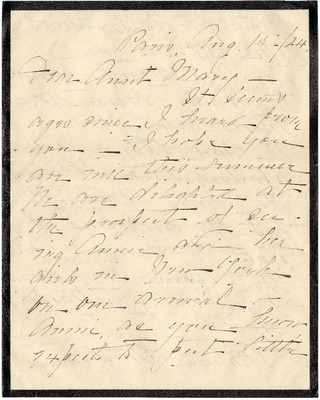 Paris, Aug. 1st /24.
Dear Aunt Mary —
It seems
ages since I heard from
you — I hope you
are nice this summer
We are delighted at
the prospect of see-
ing Annie and her
girls in New York
on our arrival —
Annie, as you know
expects to put little